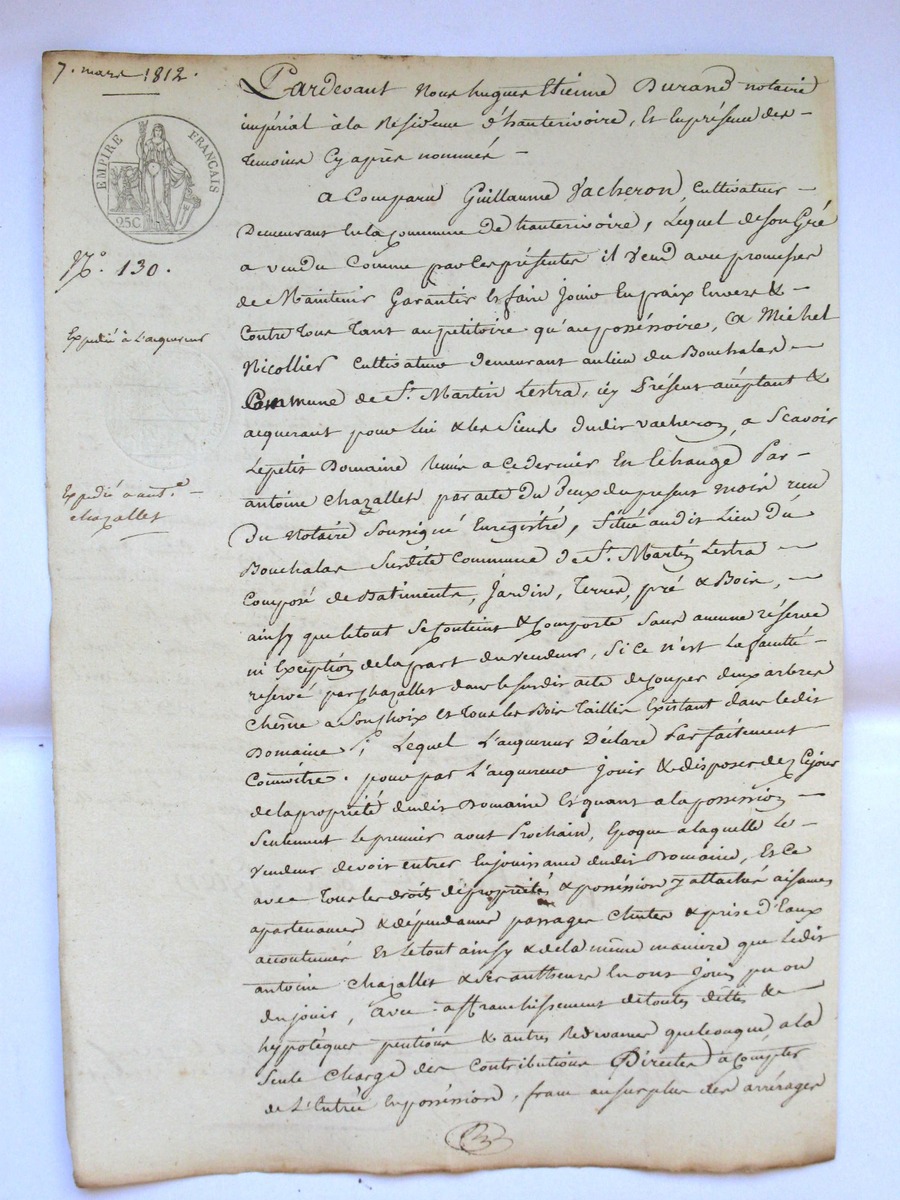 7. mars 1812.
EMPIRE FRANÇAIS
25C
N.° 130.
Expédié à L'acquereur
Expédié a ant.e
chazallet
Pardevant Nous hugues Etienne Durand notaire
impérial à la Résidence d'hauterivoire, Et En présence des
temoins Cy après nommés
A Comparu Guillaume Vacheron, Cultivateur
Demeurant En la Commune De hauterivoire, Lequel de son Gré
a vendu Comme par Ces présentes il vend avec promesses
de Maintenir Garantir Et faire Jouir En paix Envers &
Contre Tous Tant au petitoire qu'au posséssoire, a Michel
Nicollier Cultivateur demeurant au lieu du Bouchalas
Commune de St. Martin Lestra, icy Présent acceptant &
acquerant pour Lui & les Siens dudit vacheron, a Scavoir
Le petit Domaine remis a Ce dernier En Echange Par
antoine Chazallet par acte du Deux du present mois reçu
Du Notaire Soussigné Enregistré, Situé audit Lieu du
Bouchalas Susdite Commune de St. Martin Lestra
Composé de Batiments, Jardin, Terres, pré & Bois,
ainsy que le tout Se Contient & Comporte Sans aucune réserve
ni Exception de la part du vendeur, Si Ce n'est La faculté
reservé par Chazallet dans le Susdit acte de Couper deux arbres
Chesne a Son Choix Et Tous les Bois Taillis Existant dans ledit
Domaine ; Lequel L'acquereur Déclare Parfaitement
Connoitre. pour par L'acquereur Jouir & disposer dez Ce jour
de la propriété dudit Domaine Et quant a la possession
Seulement Le premier aout Prochain, Epoque a laquelle Le
vendeur devoit entrer En jouissance dudit Domaine, Et Ce
avec Tous les droits de propriétés & posséssion y attachés aisances
apartenances & dépendances passages Chutes & prise d'Eaux
accoutumés Et Le tout ainsy & de la même maniere que Ledit
antoine Chazallet & Ses autheurs En ont Joui, pu ou
du jouir, avec affranchissement de toutes dettes &
hypotêques pentions & autres Redevances quelconque, a la
Seule Charge des Contributions Directes a Compter
de L'Entrée En posséssion, franc au surplus des arrérages